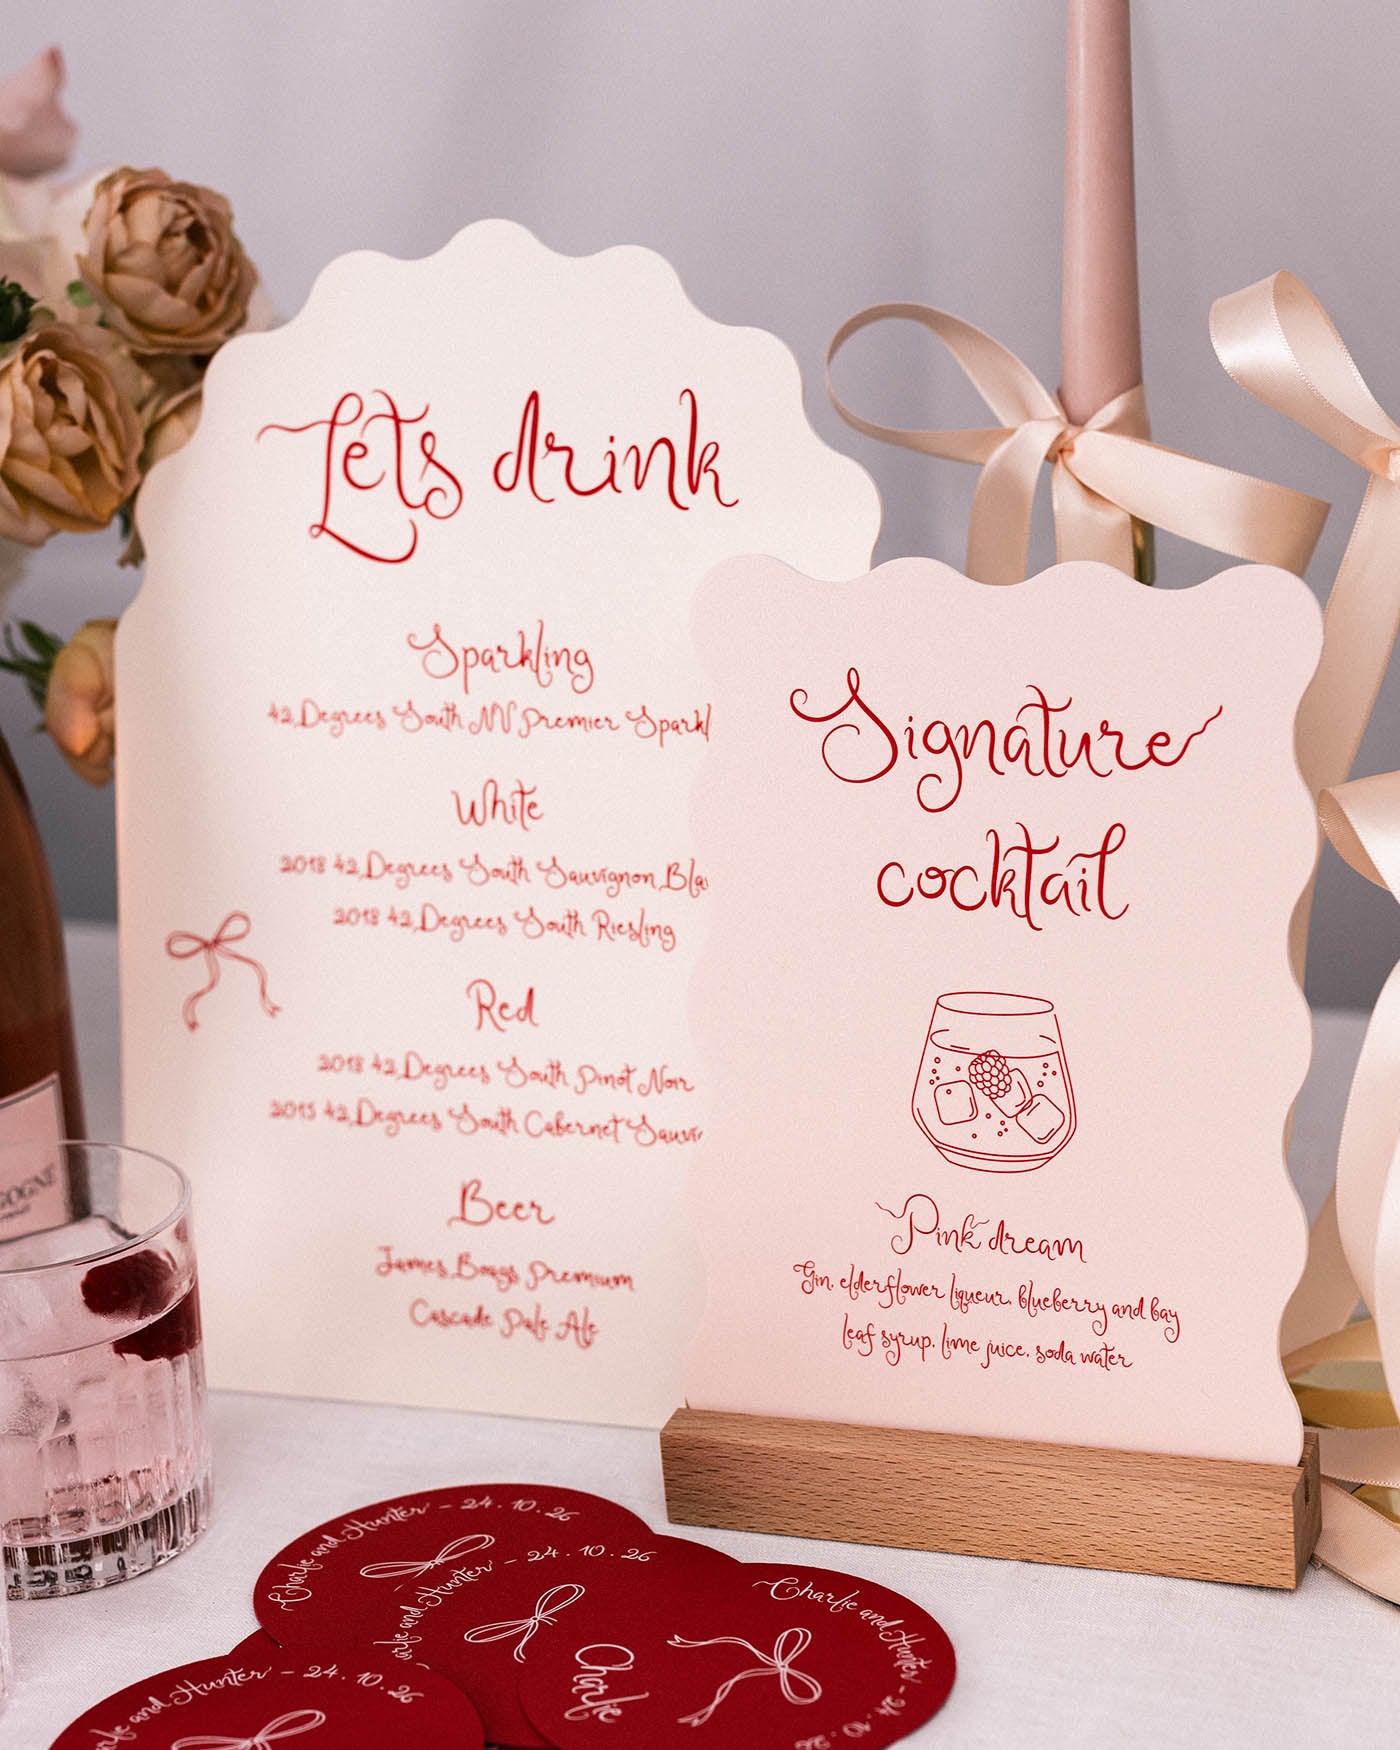 Lets drink
Sparkling
42 Degrees South NV Premier Sparkl
White
2018 42 Degrees South Sauvignon Bla
2018 42 Degrees South Riesling
Red
2018 42 Degrees South Pinot Noir
2015 42 Degrees South Cabernet Sauvi
Beer
James Boags Premium
Cascade Pale Ale
Signature
cocktail
Pink dream
Gin, elderflower liqueur, blueberry and bay
leaf syrup, lime juice, soda water
GOGNE
Charlie and Hunter - 24.10.26
arlie and Hunter - 24.10.26
Charlie and Hunter - 24.10.26
Charlie
Charlie and Hunter - 24.10.26